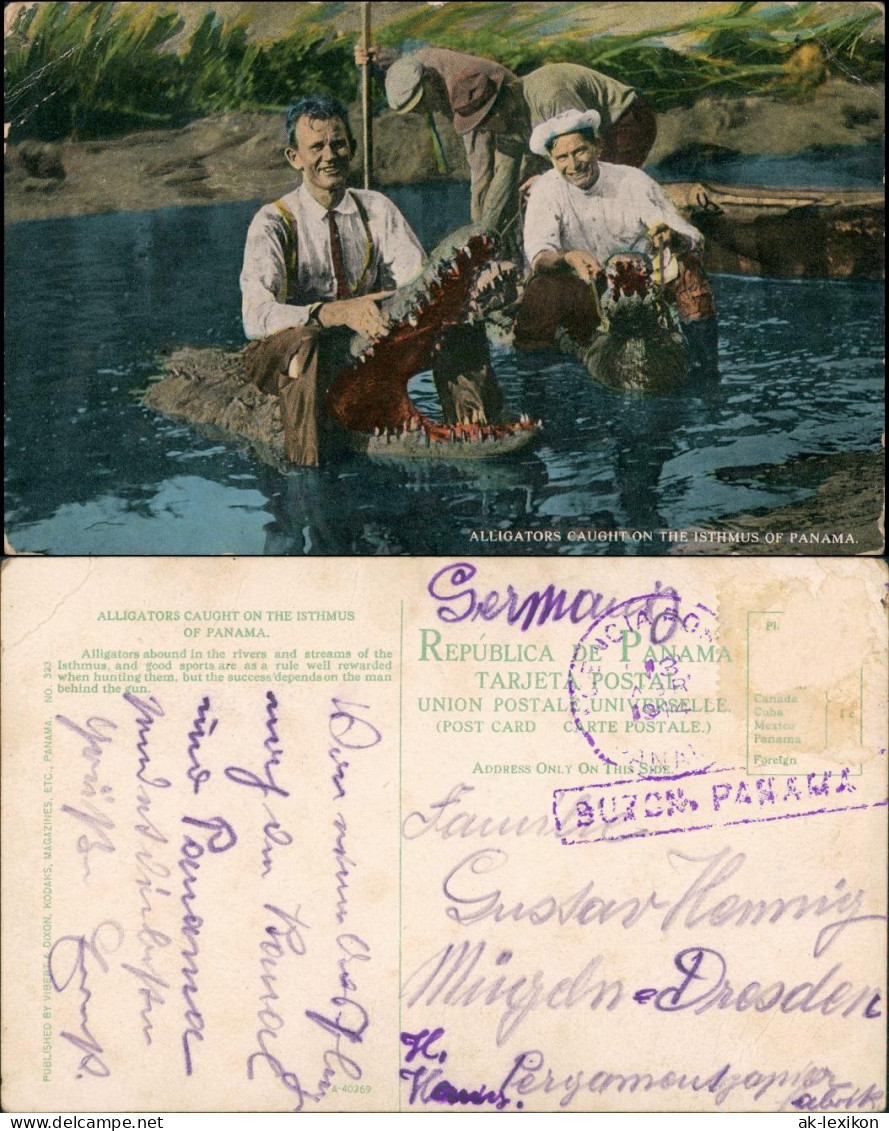 ALLIGATORS CAUGHT ON THE ISTHMUS OF PANAMA.
ALLIGATORS CAUGHT ON THE ISTHMUS
OF PANAMA.
Alligators abound in the rivers and streams of the
Isthmus, and good sports are as a rule well rewarded
when hunting them, but the success depends on the man
behind the gun.
PUBLISHED BY VIBERT & DIXON, KODAKS, MAGAZINES, ETC., PANAMA. NO. 323
Germany
REPÚBLICA DE PANAMA
TARJETA POSTAL
UNION POSTALE UNIVERSELLE.
(POST CARD CARTE POSTALE.)
ADDRESS ONLY ON THIS SIDE.
1914
Canada
Cuba
Mexico
Panama
1 c
Foreign
BUZON, PANAMA
Familie
Gustav Hennig
Mügeln-Dresden
H.
Pergamentpapier
fabrik
auf dem Kanal
und Panama
Ernst.
A-40269
ak-ansichtskarten.de
ak-lexikon